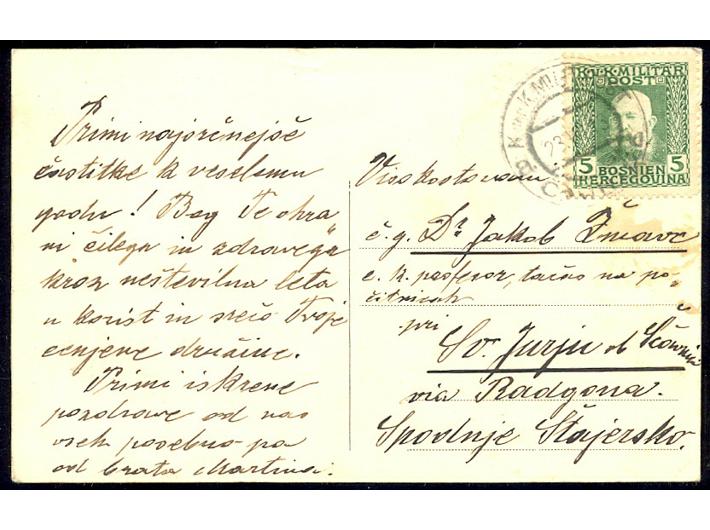 Primi najsrčnejše
častitke k veselemu
godu! Bog Te ohra
ni čilega in zdravega
kroz neštevilna leta
v korist in srečo Tvoje
cenjene družine.
Primi iskrene
pozdrave od nas
vseh posebno pa
od brata Martina.
K. und K. MILIT
23
K.u.K. MILITÄR
POST
5 BOSNIEN 5
HERCEGOVINA
č. g. Dr Jakob Žmavc
c. k. profesor, tačas na po-
čitnicah
pri
Sv. Jurju ob Ščavnici
via Radgona.
Spodnje Štajersko.